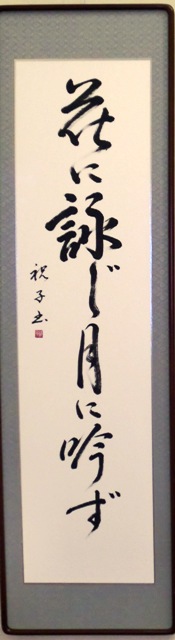 花に詠じ月に吟ず
祝子書